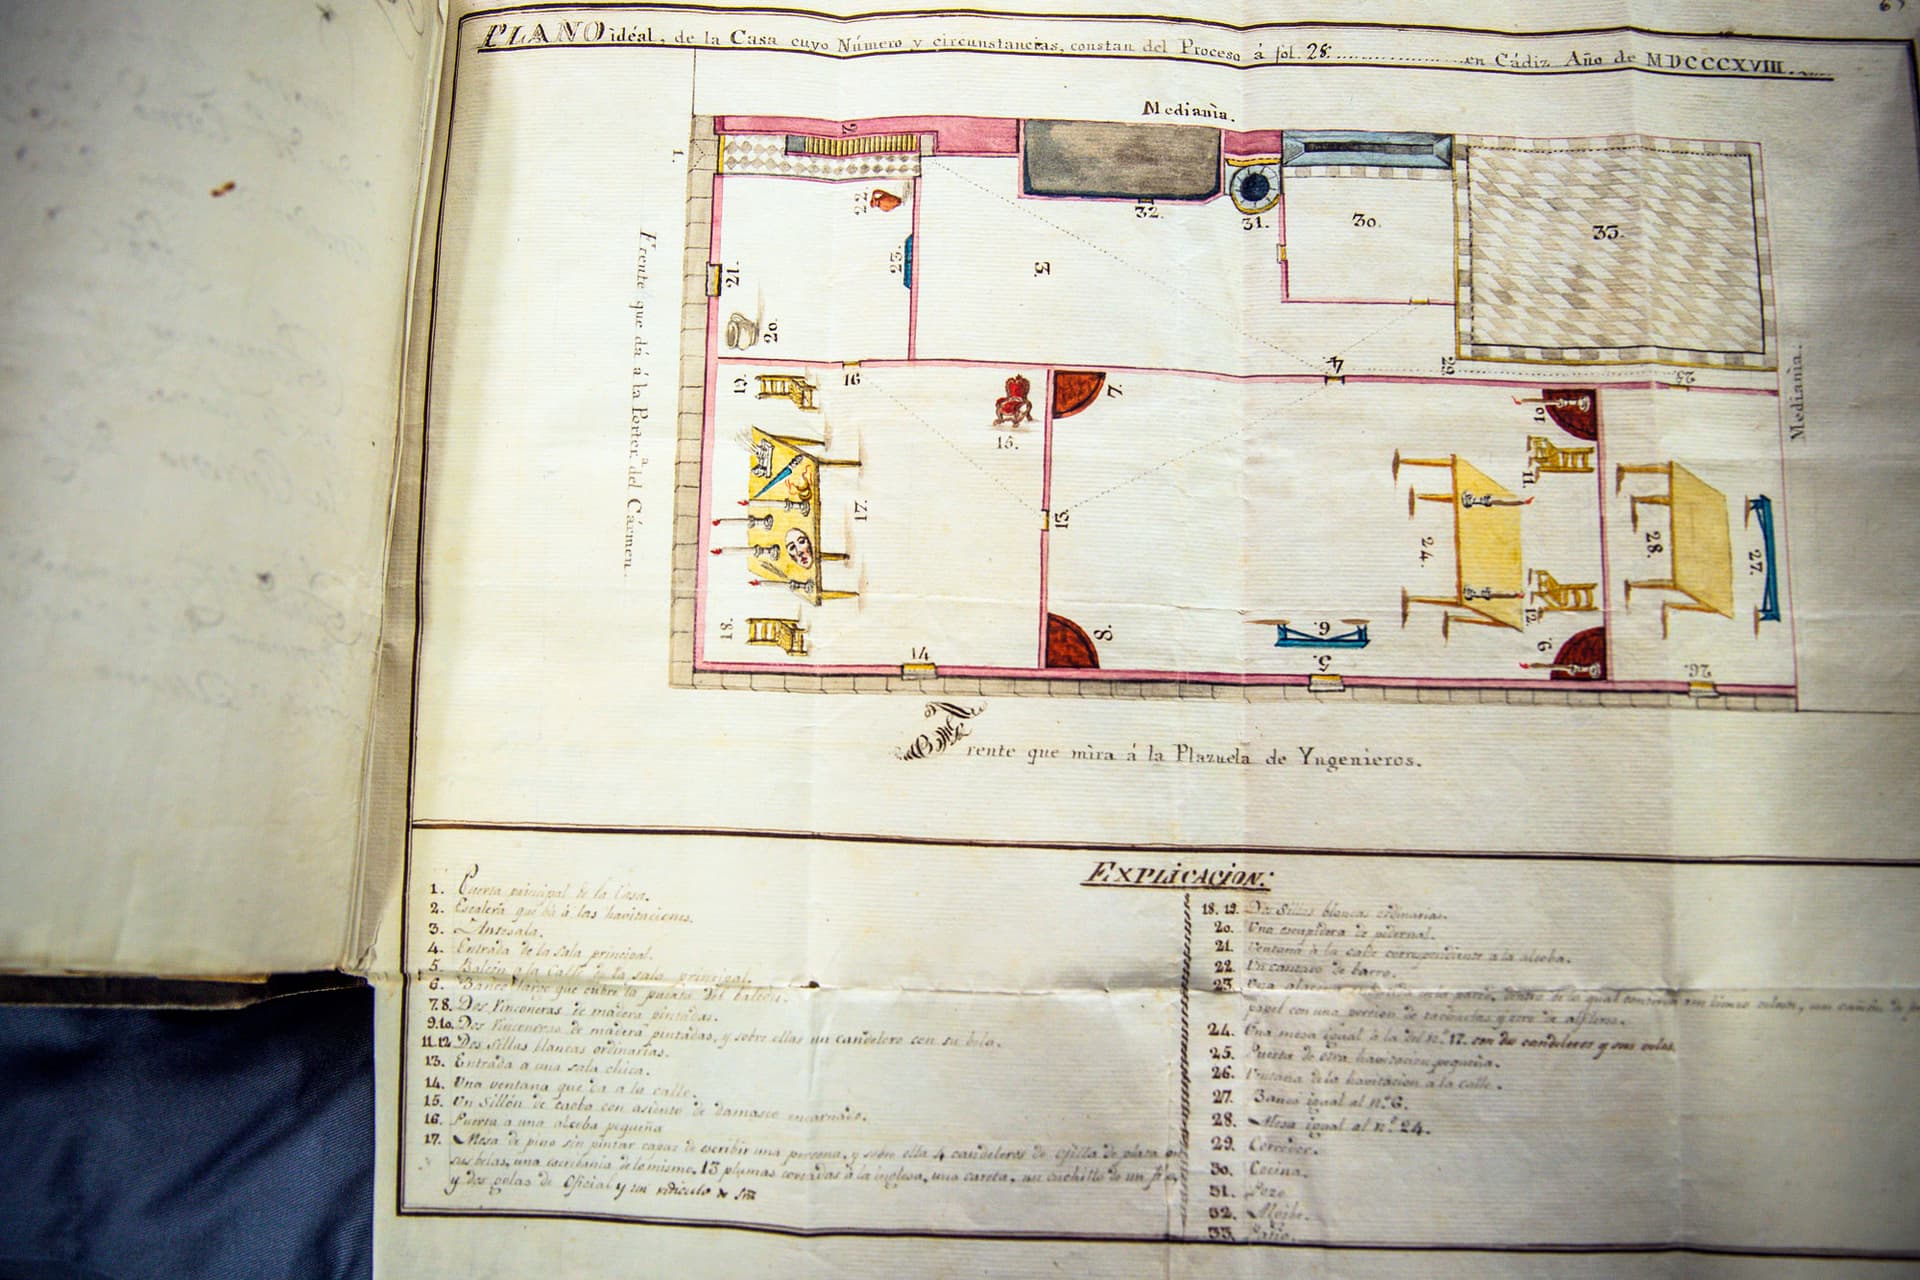 PLANO idéal, de la Casa cuyo Número y circunstancias, constan del Proceso á fol. 28. en Cádiz Año de MDCCCXVIII.
Medianìa.
1.
2
22.
32.
31.
30.
33.
3.
23.
21.
20.
Frente que dá á la Porter.ª del Cármen.
16
4.
29.
25
Medianìa.
19.
15.
7.
10
11.
17.
13.
24.
28.
27.
18.
14
8.
6.
5.
12.
9.
26.
Frente que mìra á la Plazuela de Yngenieros.
EXPLICACION:
1. Puerta principal de la Casa.
2. Escalera que bá á las havitaciones.
3. Antesala.
4. Entrada de la sala principal.
5. Balcón a la Calle de la sala principal.
6. Banco largo que cubre la puerta del balcon.
7.8. Dos Rinconeras de madera pintadas.
9.10. Dos Rinconeras de madera pintadas, y sobre ellas un candelero con su bela.
11.12 Dos Sillas blancas ordinarias.
13. Entrada a una sala chica.
14. Una ventana que da a la calle.
15. Un Sillón de caoba con asiento de damasco encarnado.
16. Puerta a una alcoba pequeña
17. Mesa de pino sin pintar capaz de escribir una persona, y sobre ella 4 candeleros de ojilla de plata
sus belas, una escribania de lo mismo, 13 plumas cortadas á la inglesa, una careta, un cuchillo de un
y dos golas de Oficial y un ridiculo de
18. 19. Dos Sillas blancas ordinarias.
20. Una escupidera de pedernal.
21. Ventana à la calle correspondiente a la alcoba.
22. Un cantaro de barro.
23. Una alacena en la pared, dentro de la qual
papel con una porcion de tachuelas y otro de alfileres.
24. Una mesa igual à la del n.º 17. con dos candeleros y sus velas.
25. Puerta de otra habitacion pequeña.
26. Ventana de la havitacion á la calle.
27. Banco igual al n.º 6.
28. Mesa igual al n.º 24.
29. Corredor.
30. Cocina.
31. Pozo.
32. Algibe.
33. Patio.